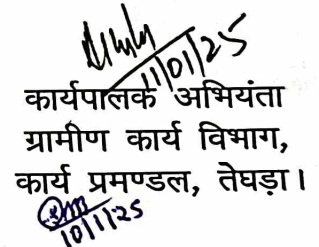 11/01/25
कार्यपालक अभियंता
ग्रामीण कार्य विभाग,
कार्य प्रमण्डल, तेघड़ा।
10/1/25